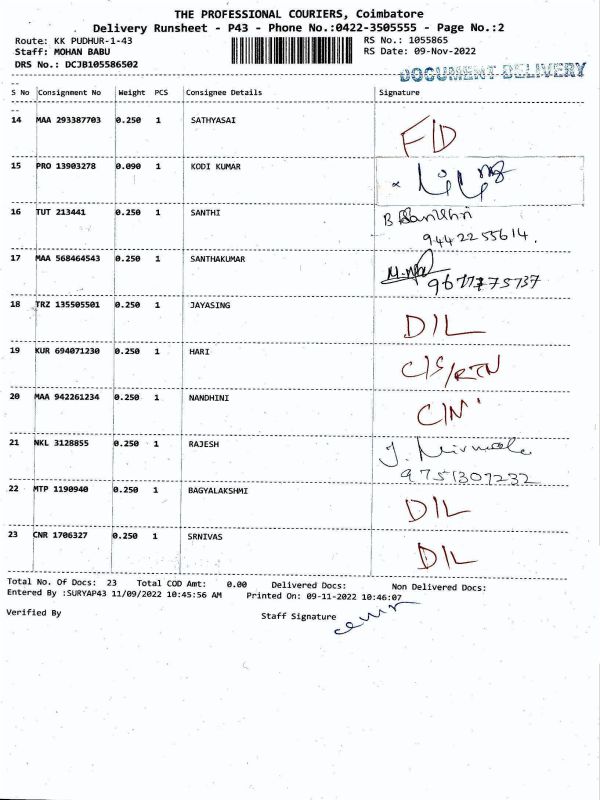 THE PROFESSIONAL COURIERS, Coimbatore
Delivery Runsheet - P43 - Phone No.:0422-3505555 - Page No.:2
Route: KK PUDHUR-1-43 RS No.: 1055865
Staff: MOHAN BABU RS Date: 09-Nov-2022
DRS No.: DCJB105586502
DOCUMENT DELIVERY
S No Consignment No Weight PCS Consignee Details Signature
14 MAA 293387703 0.250 1 SATHYASAI F/D
15 PRO 13903278 0.090 1 KODI KUMAR
16 TUT 213441 0.250 1 SANTHI
9442255614.
17 MAA 568464543 0.250 1 SANTHAKUMAR
9677775737
18 TRZ 135505501 0.250 1 JAYASING D/L
19 KUR 694071230 0.250 1 HARI C/S/RTN
20 MAA 942261234 0.250 1 NANDHINI C/N
21 NKL 3128855 0.250 1 RAJESH J. Nirmala
9751307232
22 MTP 1190940 0.250 1 BAGYALAKSHMI D/L
23 CNR 1706327 0.250 1 SRNIVAS D/L
Total No. Of Docs: 23 Total COD Amt: 0.00 Delivered Docs: Non Delivered Docs:
Entered By :SURYAP43 11/09/2022 10:45:56 AM Printed On: 09-11-2022 10:46:07
Verified By Staff Signature